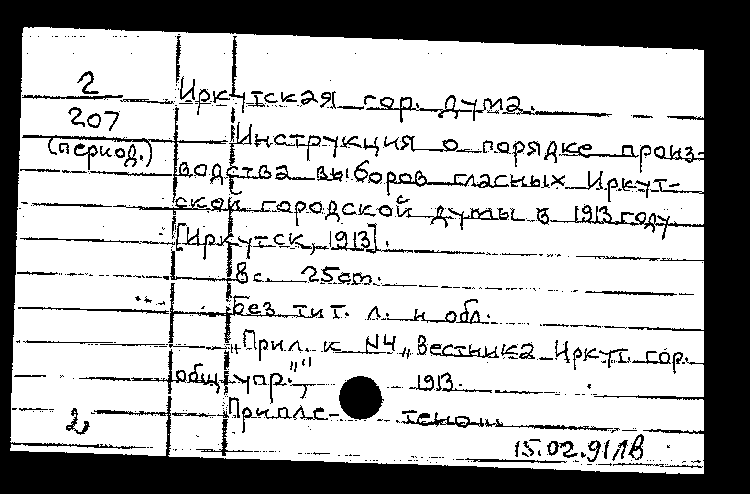 2
207
(период.)
Иркутская гор. дума.
Инструкция о порядке произ-
водства выборов гласных Иркут-
ской городской думы в 1913 году.
[Иркутск, 1913].
8 с. 25 cm.
Без тит. л. и обл.
„Прил. к №4 „Вестника Иркут. гор.
общ. упр."", 1913.
Припле- тено
2
15.02.91 ЛВ